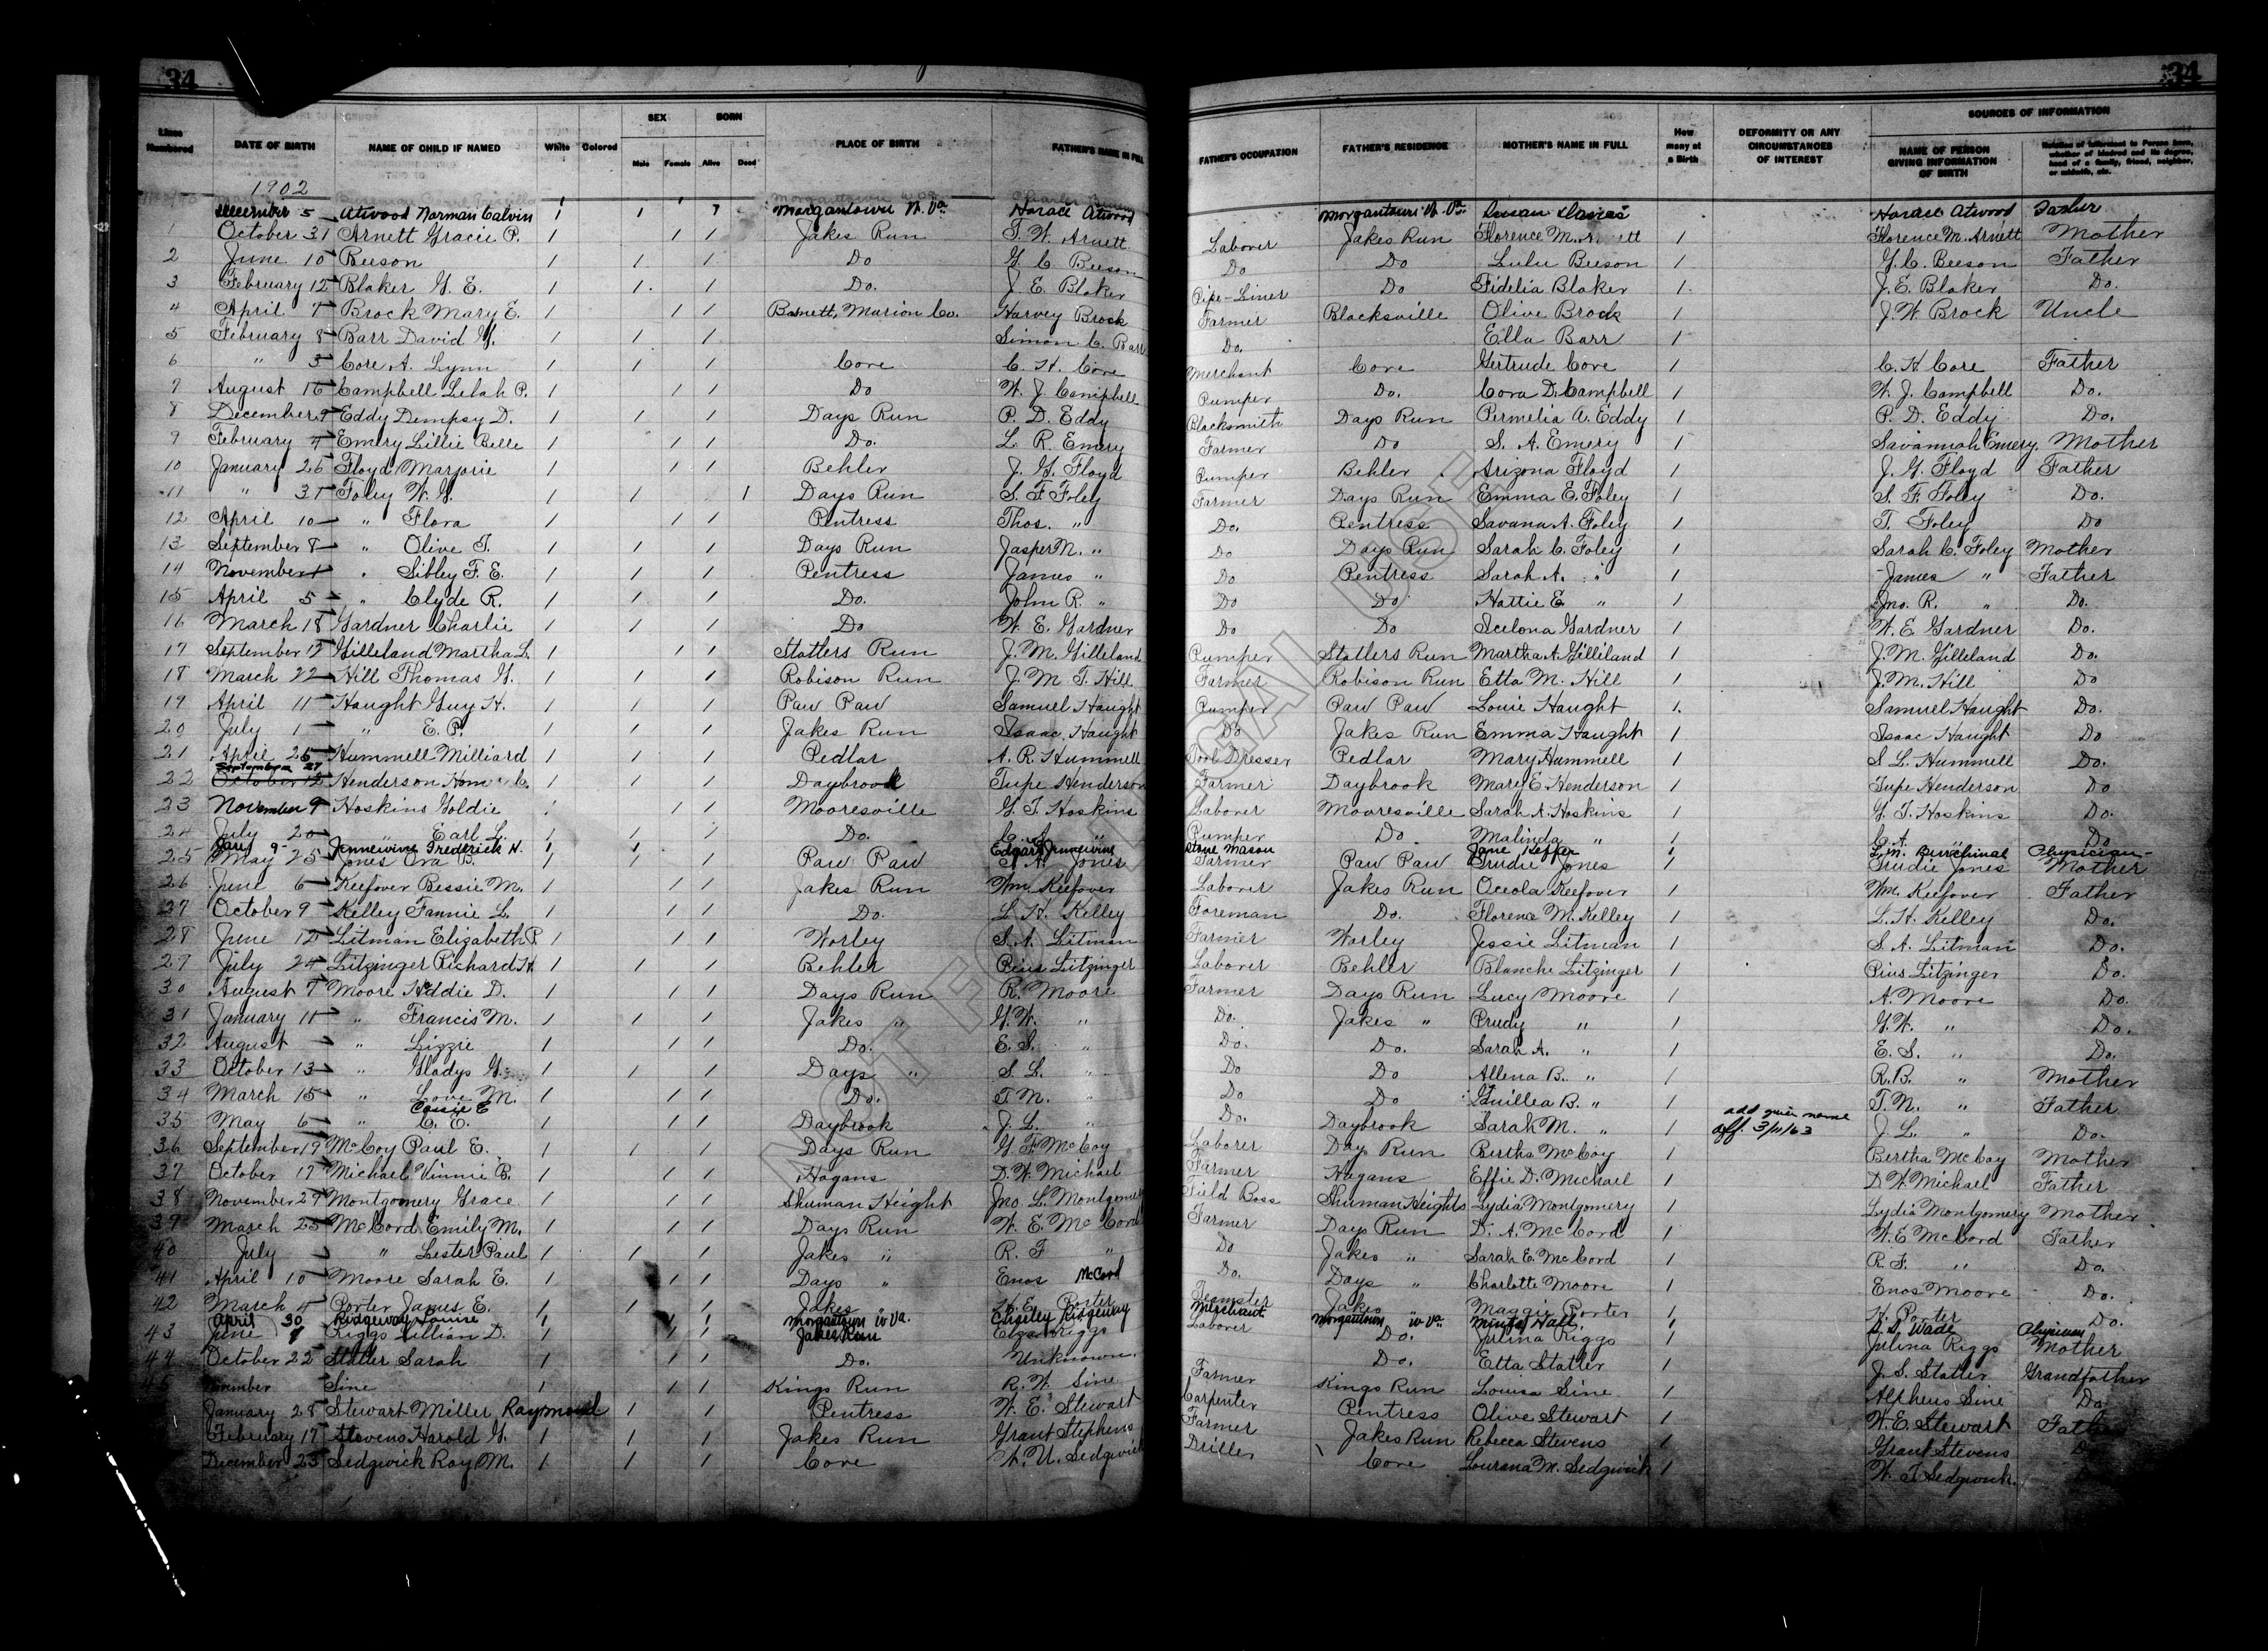 34 34
SOURCES OF INFORMATION
Lines Numbered DATE OF BIRTH NAME OF CHILD IF NAMED White Colored SEX Male Female BORN Alive Dead PLACE OF BIRTH FATHER'S NAME IN FULL FATHER'S OCCUPATION FATHER'S RESIDENCE MOTHER'S NAME IN FULL How many at a Birth DEFORMITY OR ANY CIRCUMSTANCES OF INTEREST NAME OF PERSON GIVING INFORMATION OF BIRTH
1902
December 5 Atwood Norman Calvin 1 1 1 Morgantown W. Va. Horace Atwood Morgantown W. Va. Susan Davies Horace Atwood Father
1 October 31 Arnett Gracie P. 1 1 1 Jakes Run T. W. Arnett Laborer Jakes Run Florence M. Arnett 1 Florence M. Arnett Mother
2 June 10 Beeson 1 1 1 Do G. C. Beeson Do Do Lulu Beeson 1 G. C. Beeson Father
3 February 12 Blaker G. E. 1 1 1 Do. J. E. Blaker Pipe-Liner Do Fidelia Blaker 1 J. E. Blaker Do.
4 April 7 Brock Mary E. 1 1 1 Barnett, Marion Co. Harvey Brock Farmer Blacksville Olive Brock 1 J. W. Brock Uncle
5 February 8 Barr David G. 1 1 1 Simon C. Barr Do. Ella Barr 1
6 " 3 Core A. Lynn 1 1 1 Core C. H. Core Merchant Core Gertrude Core 1 C. H. Core Father
7 August 16 Campbell Lelah P. 1 1 1 Do W. J. Campbell Pumper Do. Cora D. Campbell 1 W. J. Campbell Do.
8 December 9 Eddy Dempsy D. 1 1 1 Days Run P. D. Eddy Blacksmith Days Run Permelia A. Eddy 1 P. D. Eddy Do.
9 February 4 Emery Lillie Belle 1 1 1 Do. L. R. Emery Farmer Do S. A. Emery 1 Savannah Emery. Mother
10 January 26 Floyd Marjorie 1 1 1 Behler J. G. Floyd Pumper Behler Arizona Floyd 1 J. G. Floyd Father
11 " 31 Foley W. G. 1 1 1 Days Run S. F. Foley Farmer Days Run Emma E. Foley 1 S. F. Foley Do.
12 April 10 " Flora 1 1 1 Pentress Thos. " Do. Pentress Savana A. Foley 1 T. Foley Do
13 September 8 " Olive T. 1 1 1 Days Run Jasper N. " Do Days Run Sarah C. Foley 1 Sarah C. Foley Mother
14 November 1 " Sibley F. E. 1 1 1 Pentress James " Do Pentress Sarah A. " 1 James " Father
15 April 5 " Clyde R. 1 1 1 Do. John R. " Do Do Hattie E. " 1 Jno. R. " Do.
16 March 18 Gardner Charlie 1 1 1 Do W. E. Gardner Do Do Scelona Gardner 1 W. E. Gardner Do.
17 September 17 Gilleland Martha L. 1 1 1 Statlers Run J. M. Gilleland Pumper Statlers Run Martha A. Gilliland 1 J. M. Gilleland Do.
18 March 22 Hill Thomas G. 1 1 1 Robison Run J. M. T. Hill Farmer Robison Run Etta M. Hill 1 J. M. Hill Do
19 April 11 Haught Guy H. 1 1 1 Paw Paw Samuel Haught Pumper Paw Paw Louie Haught 1 Samuel Haught Do.
20 July 1 " E. P. 1 1 1 Jakes Run Isaac Haught Do Jakes Run Emma Haught 1 Isaac Haught Do
21 April 25 Hummell Milliard 1 1 1 Pedlar A. R. Hummell Tool Dresser Pedlar Mary Hummell 1 S L. Hummell Do.
September 27
22 October 12 Henderson C. 1 1 1 Daybrook Tupe Henderson Farmer Daybrook Mary E. Henderson 1 Tupe Henderson Do
23 November 9 Hoskins Goldie 1 1 1 Mooresville G. T. Hoskins Laborer Mooresville Sarah A. Hoskins 1 G. T. Hoskins Do.
24 July 20 " Earl L. 1 1 1 Do. C. A. " Pumper Do Malinda " 1 C. A. " Do
Jany 9 Jennewine Frederick H. 1 Edgar Jennewine Stone Mason Jane Keffer 1 Physician
25 May 25 Jones Ora B. 1 1 1 Paw Paw T. A. Jones Farmer Paw Paw Trudie Jones 1 Trudie Jones Mother
26 June 6 Keefover Bessie M. 1 1 1 Jakes Run Wm. Keefover Laborer Jakes Run Oceola Keefover 1 Wm. Keefover Father
27 October 9 Kelley Fannie L. 1 1 1 Do. L. H. Kelley Foreman Do. Florence M. Kelley 1 L. H. Kelley Do.
28 June 12 Litman Elizabeth P. 1 1 1 Worley S. A. Litman Farmer Worley Jessie Litman 1 S. A. Litman Do.
29 July 24 Litzinger Richard H. 1 1 1 Behler Pius Litzinger Laborer Behler Blanche Litzinger 1 Pius Litzinger Do.
30 August 7 Moore Haddie D. 1 1 1 Days Run R. Moore Farmer Days Run Lucy Moore 1 A. Moore Do.
31 January 11 " Francis M. 1 1 1 Jakes " G. W. " Do. Jakes " Prudy " 1 G. W. " Do.
32 August " Lizzie 1 1 1 Do. E. S. " Do. Do. Sarah A. " 1 E. S. " Do.
33 October 13 " Gladys G. 1 1 1 Days " S. L. " Do Do Allena B. " 1 R. B. " Mother
34 March 15 " Love M. 1 1 1 Do. T. N. " Do Do Guillea B. " 1 T. N. " Father
Cassie E add given name
35 May 6 " C. E. 1 1 1 Daybrook J. L. " Do. Daybrook Sarah M. " 1 aff. 3/11/63 J. L. " Do.
36 September 19 McCoy Paul E. 1 1 1 Days Run G. F. McCoy Laborer Day Run Bertha McCoy 1 Bertha McCoy Mother
37 October 17 Michael Vinnie B. 1 1 1 Hagans D. W. Michael Farmer Hagans Effie D. Michael 1 D. W. Michael Father
38 November 27 Montgomery Grace 1 1 1 Shuman Height Jno. L. Montgomery Field Boss Shuman Heights Lydia Montgomery 1 Lydia Montgomery Mother
39 March 25 McCord Emily M. 1 1 1 Days Run W. E. McCord Farmer Days Run D. A. McCord 1 W. E. McCord Father
40 July " Lester Paul 1 1 1 Jakes " R. F. " Do Jakes " Sarah E. McCord 1 R. F. " Do.
41 April 10 Moore Sarah E. 1 1 1 Days " Enos McCord Do. Days " Charlotte Moore 1 Enos Moore Do.
42 March 4 Porter James E. 1 1 1 Jakes H. E. Porter Teamster Jakes Maggie Porter 1 H. Porter Do.
April 30 Ridgeway Louise 1 1 1 Morgantown W Va. Charley Ridgeway Merchant Morgantown W Va. Hall 1 Wade Physician
43 June Riggs Lillian D. 1 1 1 Jakes Run Elza Riggs Laborer Do. Julina Riggs 1 Julina Riggs Mother
44 October 22 Statler Sarah 1 1 1 Do. Unknown. Do. Etta Statler 1 J. S. Statler Grandfather
45 November Sine 1 1 1 Kings Run R. W. Sine Farmer Kings Run Louisa Sine 1 Alpheus Sine Do.
January 28 Stewart Miller Raymond 1 1 Pentress W. E. Stewart Carpenter Pentress Olive Stewart 1 W. E. Stewart Father
February 17 Stevens Harold G. 1 1 1 Jakes Run Grant Stephens Farmer Jakes Run Rebecca Stevens 1 Grant Stevens
December 23 Sedgwick Ray M. 1 1 1 Core Sedgwick Driller Core Lourana M. Sedgwick 1 W. T. Sedgwick.
NOT FOR LEGAL USE